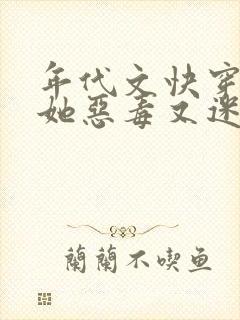 年代文快穿
她惡毒又迷
蘭蘭不喫鱼